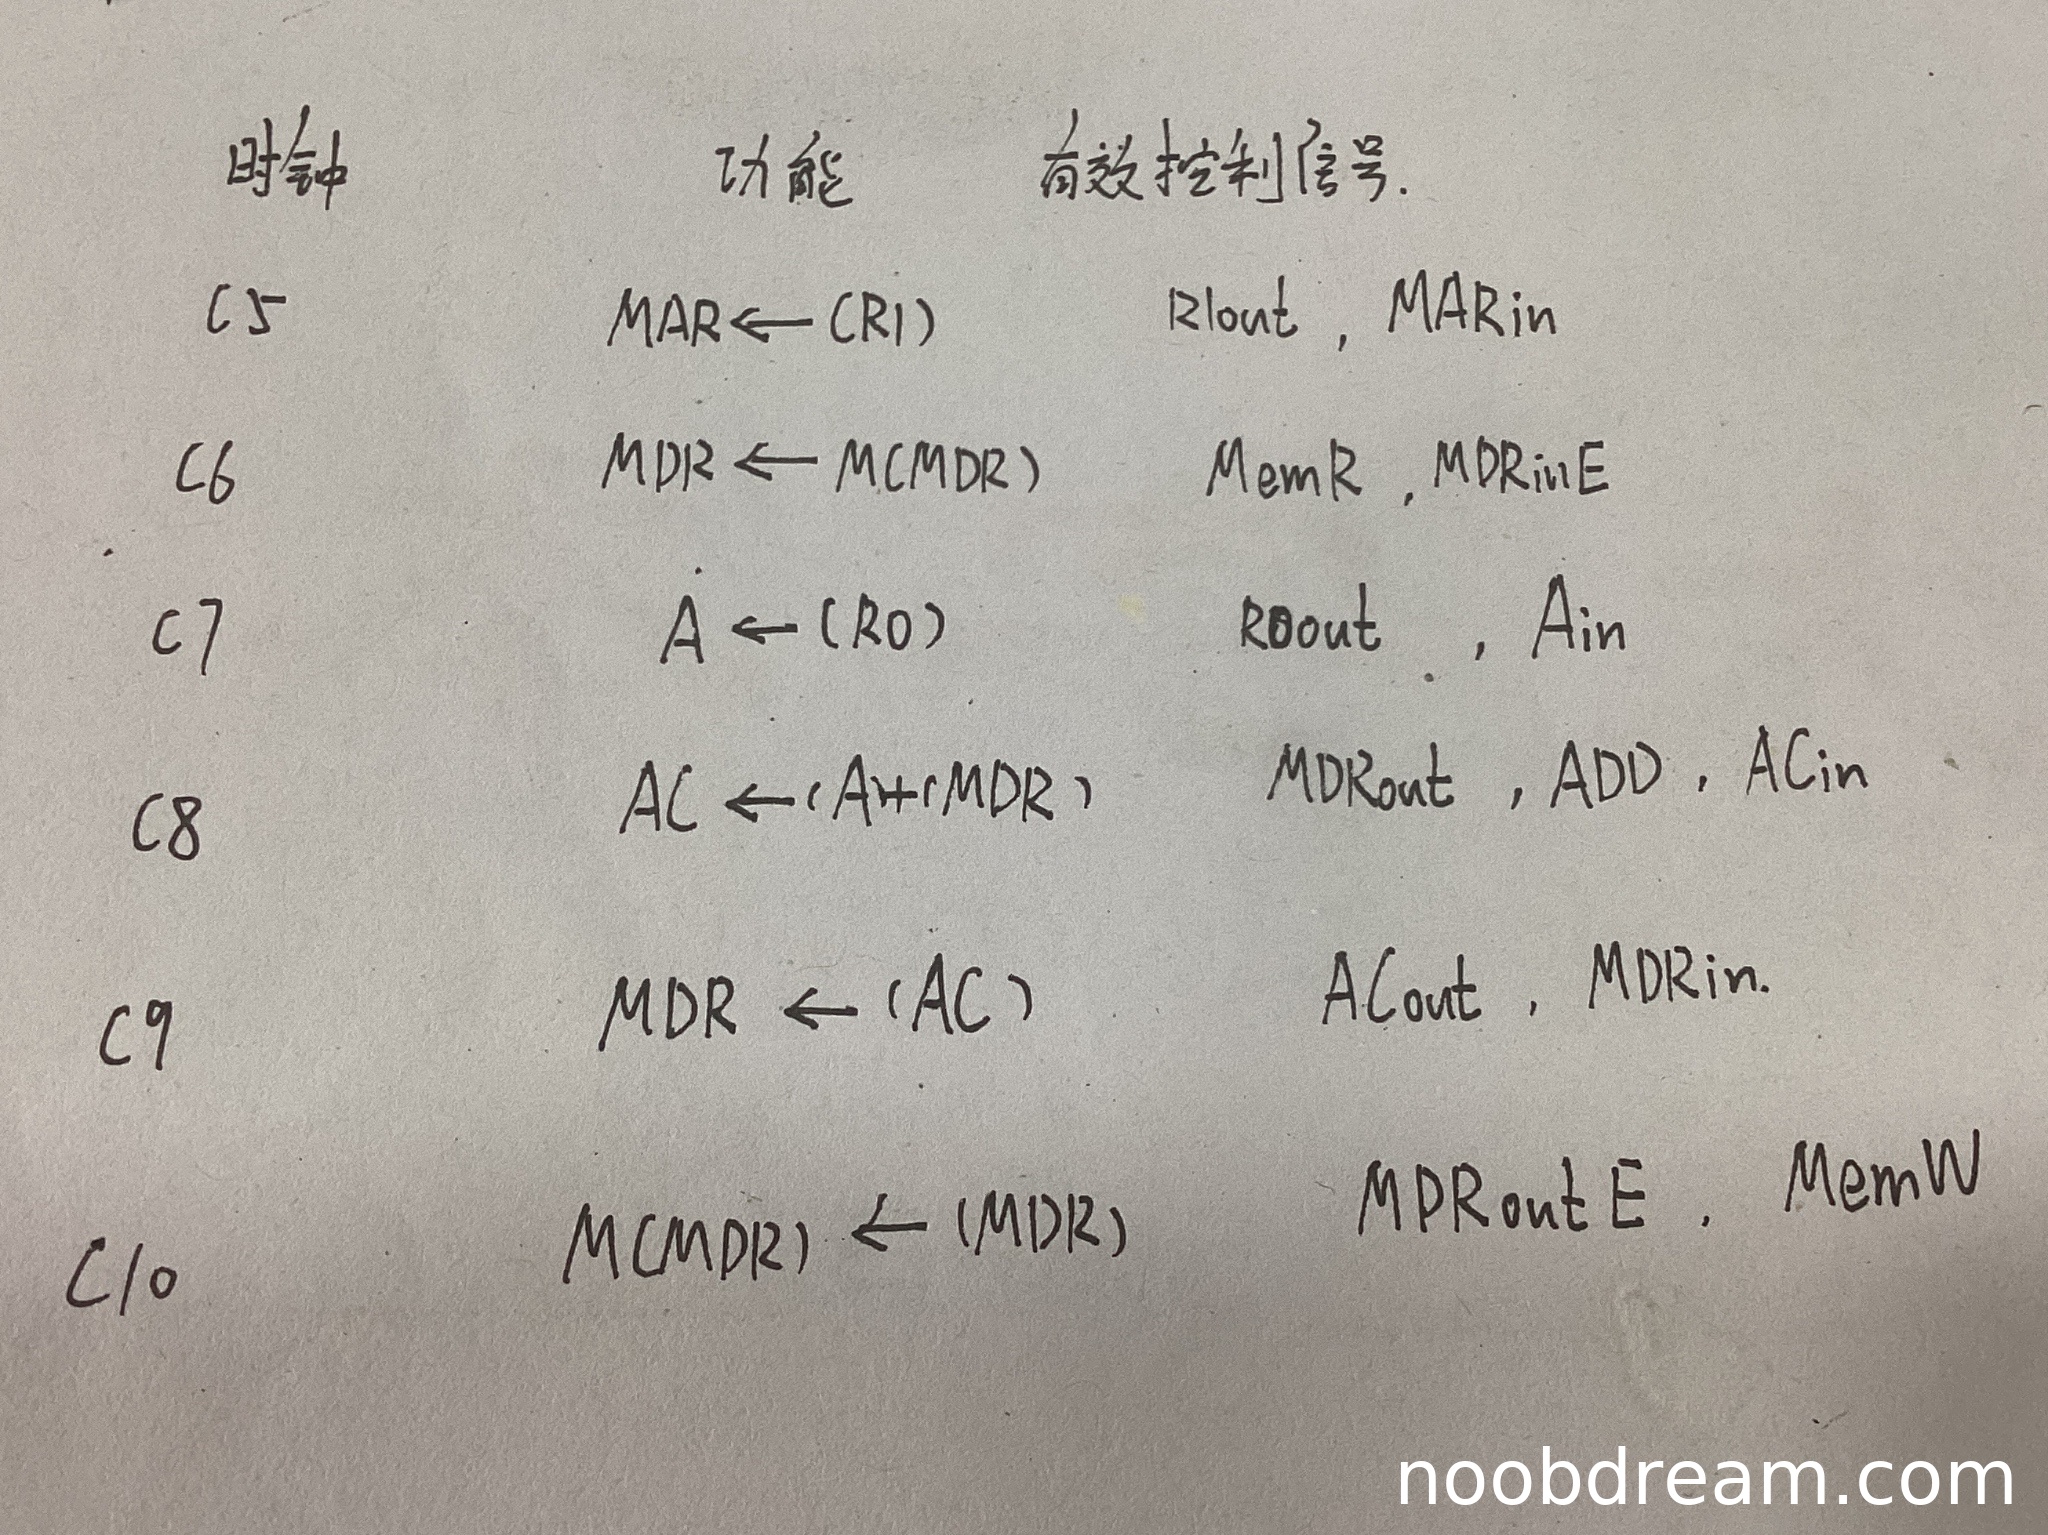 时钟 功能 有效控制信号.
C5 MAR←(R1) R1out, MARin
C6 MDR←M(MDR) MemR, MDRinE
C7 A←(R0) R0out, Ain
C8 AC←(A)+(MDR) MDRout, ADD, ACin
C9 MDR←(AC) ACout, MDRin.
C10 M(MDR)←(MDR) MDRoutE, MemW
noobdream.com